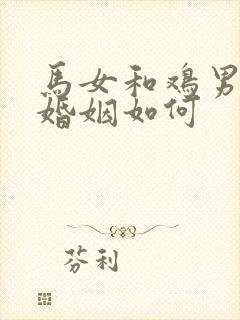 馬女和鳮男
婚姻如何
芬利